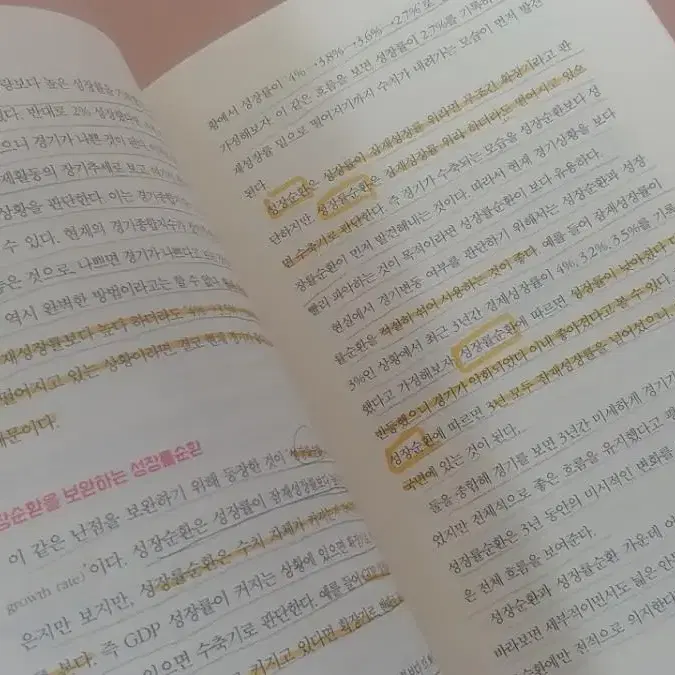 보다 높은 성장률을 기록
다. 반대로 2% 성장했더라도
으니 경기가 나쁜 것이
제활동의 장기추세로 보고
상황을 판단한다. 이는 경기종합
수 있다. 현재의 경기종합지수가
좋은 것으로, 나쁘면 경기가 나쁘다고
역시 완벽한 방법이라고는 할 수 없다.
재성장률보다 높다 하더라도
떨어지고 있는 상황이라면 결코 현재 경기가
때문이다.
성장순환을 보완하는 성장률순환
이 같은 난점을 보완하기 위해 등장한 것이 '성장률순환
growth rate)'이다. 성장순환은 성장률이 잠재성장률보다 높
은지만 보지만, 성장률순환은 수치 자체가 커지는
를 본다. 즉 GDP 성장률이 커지는 상황에 있으면 확장기
있으면 수축기로 판단한다. 예를 들어 GDP
커지고 있다면 확장기로
황에서 성장률이 '4%→3.8%→3.6%→2.7%'로
가정해보자. 이 같은 흐름을 보면 성장률이 2.7%를 기록하
재성장률 밑으로 떨어지기까지 수치가 내려가는 모습이 먼저 발견
된다.
성장순환은 성장률이 잠재성장률 위라면 무조건 확장기라고 판
단하지만, 성장률순환은 잠재성장률 위라 하더라도 떨어지고 있으
면 수축기로 판단한다. 즉 경기가 수축되는 모습을 성장순환보다 성
장률순환이 먼저 발견해내는 것이다. 따라서 현재 경기상황을 보다
빨리 파악하는 것이 목적이라면 성장률순환이 보다 유용하다.
현실에서 경기변동 여부를 판단하기 위해서는 성장순환과 성장
률순환을 적절히 섞어 사용하는 것이 좋다. 예를 들어 잠재성장률이
3%인 상황에서 최근 3년간 경제성장률이 4%, 3.2%, 3.5%를 기록
했다고 가정해보자. 성장률순환에 따르면 성장률이 낮아졌다 다
반등했으니 경기가 악화되었다 이내 좋아졌다고 볼 수 있다.
성장순환에 따르면 3년 모두 잠재성장률을 넘어섰으니,
국면에 있는 것이 된다.
둘을 종합해 경기를 보면 3년간 미세하게 경기가
있었지만 전체적으로 좋은 흐름을 유지했다고
성장률순환은 3년 동안의 미시적인 변화를
은 전체 흐름을 보여준다.
성장순환과 성장률순환 가운데
바라보면 세부적이면서도 넓은 안목
순환에만 전적으로 의지한다